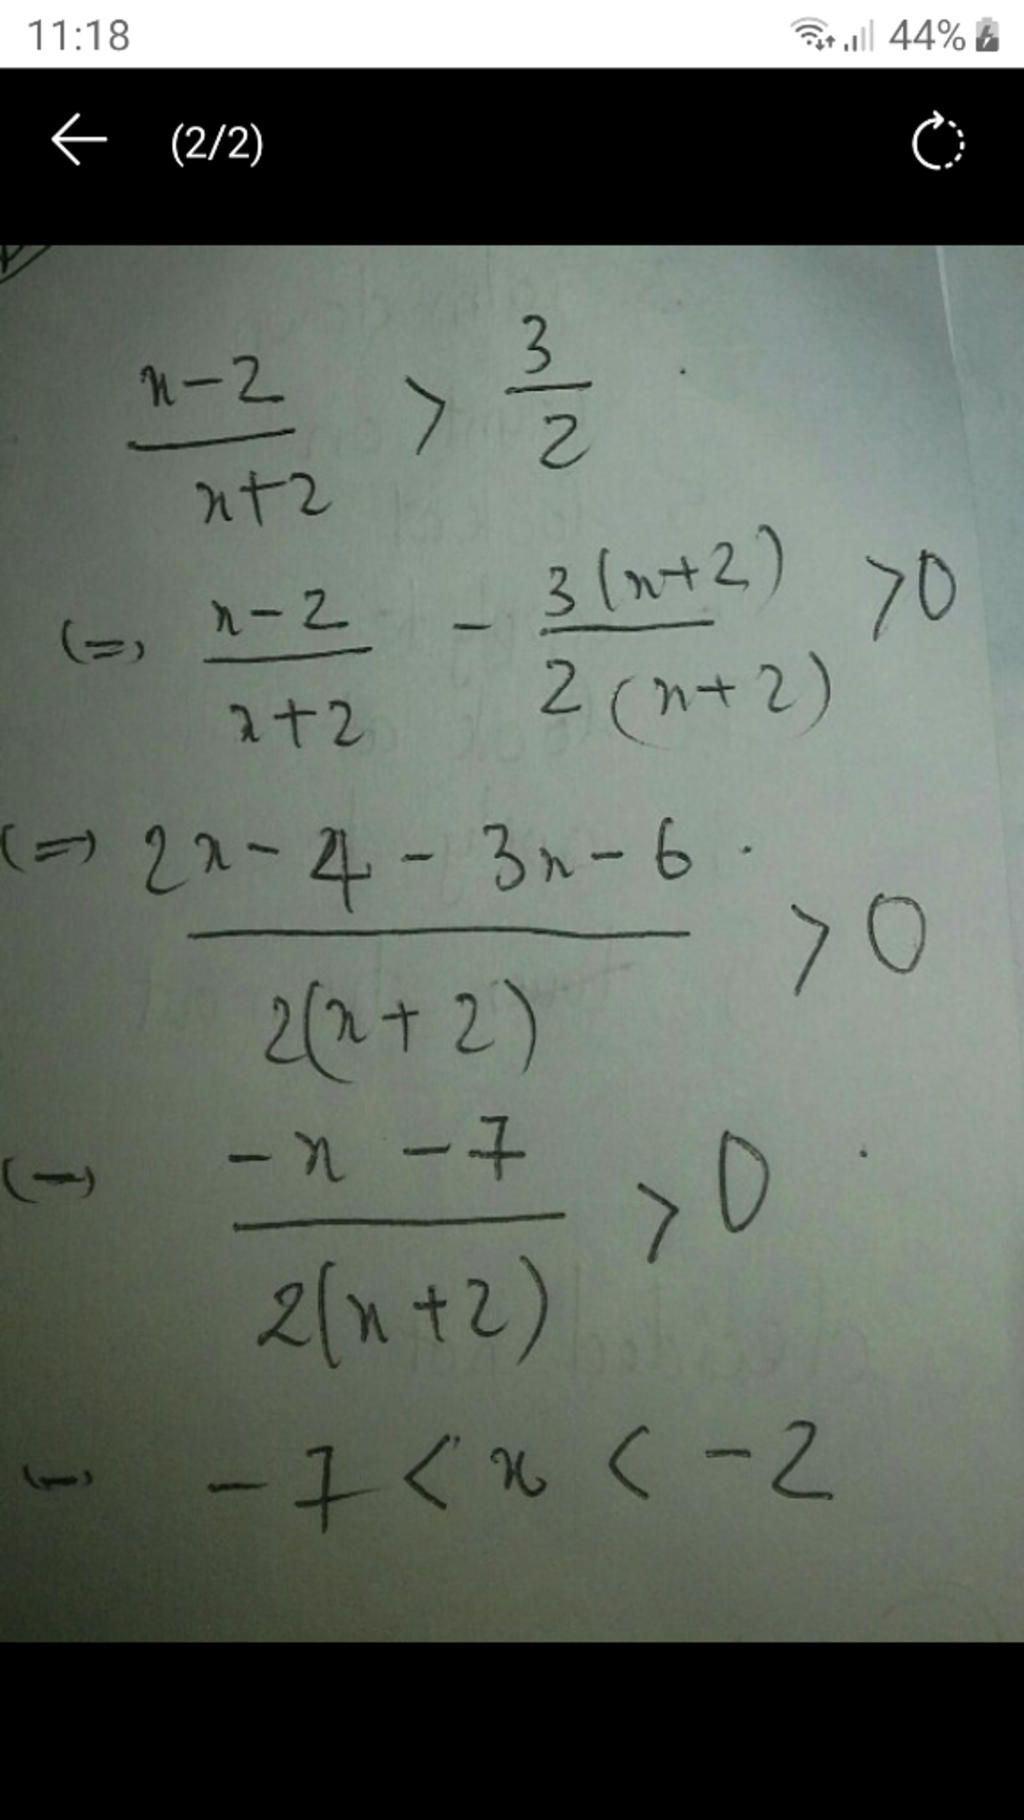 11:18 44%
(2/2)
x-2 / x+2 > 3/2
(=) x-2 / x+2 - 3(x+2) / 2(x+2) >0
(=) 2x-4-3x-6 / 2(x+2) >0
(-) -x-7 / 2(x+2) >0
(-) -7<x<-2